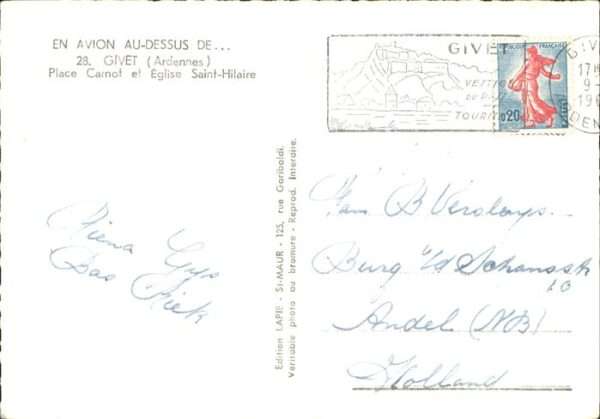 EN AVION AU-DESSUS DE...
28. GIVET (Ardennes)
Place Carnot et Église Saint-Hilaire
GIVET
TOURI
RÉPUBLIQUE FRANÇAISE
0,20
GIV
17H
9-
196
DEN
Edition LAPIE - St-MAUR - 125, rue Garibaldi.
Véritable photo au bromure - Reprod. Interdite.
Riena Gys
Bas Riek
Fam B Verdouys.
Burg v/d Schansstr
10
Andel (NB)
Holland